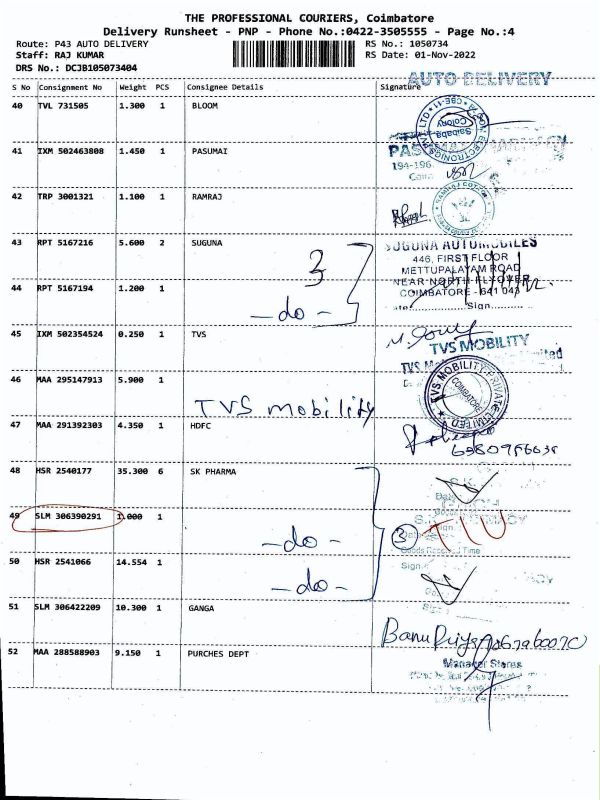 THE PROFESSIONAL COURIERS, Coimbatore
Delivery Runsheet - PNP - Phone No.:0422-3505555 - Page No.:4
Route: P43 AUTO DELIVERY
RS No.: 1050734
Staff: RAJ KUMAR
RS Date: 01-Nov-2022
DRS No.: DCJB105073404
AUTO DELIVERY
S No Consignment No Weight PCS Consignee Details Signature
40 TVL 731505 1.300 1 BLOOM
41 IXM 502463808 1.450 1 PASUMAI
194-196
42 TRP 3001321 1.100 1 RAMRAJ
43 RPT 5167216 5.600 2 SUGUNA
3
SUGUNA AUTOMOBILES
446, FIRST FLOOR
METTUPALAYAM ROAD
NEAR NORTH FLYOVER
COIMBATORE - 641 043
Sign
44 RPT 5167194 1.200 1
- do -
45 IXM 502354524 0.250 1 TVS
TVS MOBILITY
46 MAA 295147913 5.900 1
TVS mobility
TVS MOBILITY PRIVATE LIMITED
COIMBATORE
47 MAA 291392303 4.350 1 HDFC
48 HSR 2540177 35.300 6 SK PHARMA
49 SLM 306390291 1.000 1
- do -
3
50 HSR 2541066 14.554 1
- do -
Goods Received Time
Sign
51 SLM 306422209 10.300 1 GANGA
Banu Priya
52 MAA 288588903 9.150 1 PURCHES DEPT
Manager Stores